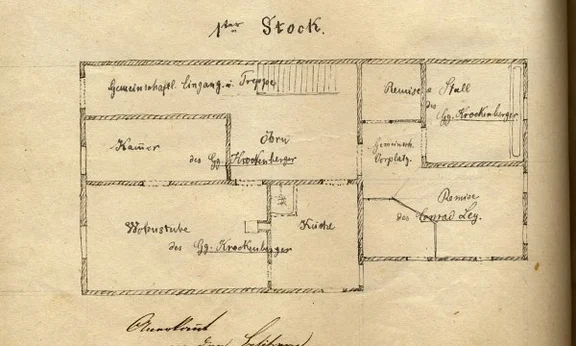 1ter Stock.
Gemeinschaftl. Eingang u. Treppe
Remise
Stall
des
Gg. Krockenberger
Kamer
Öhrn
des Gg. Krockenberger
Gemeinsch.
Vorplatz.
Remise
des Conrad Ley.
Wohnstube
des Gg. Krockenberger
Küche
Anerkannt